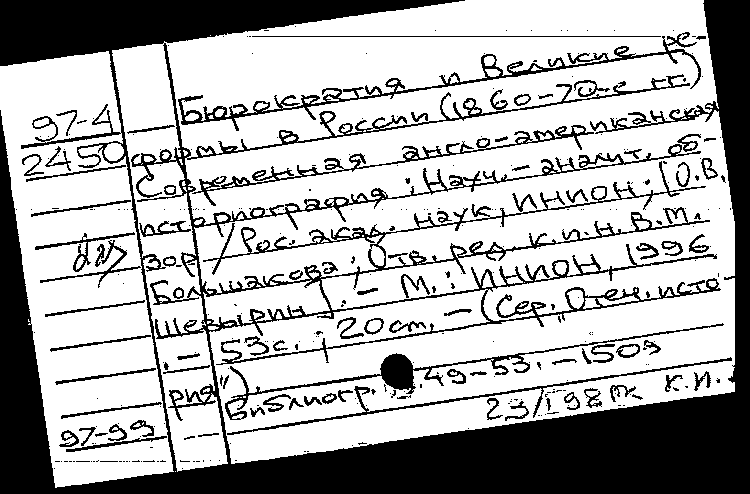 Бюрократия и Великие ре-
97-4
2450
формы в России (1860-70-е гг.)
Современная англо-американская
историография : Науч.-аналит. об-
зор / Рос. акад. наук, ИНИОН ; [О.В.
Большакова ; Отв. ред. к.и.н. В.М.
Шевырин]. - М. : ИНИОН, 1996
. - 53с. ; 20см. - (Сер. "Отеч. исто-
рия").
Библиогр. 49-53. - 150э
97-99
23/I 98
к.и.